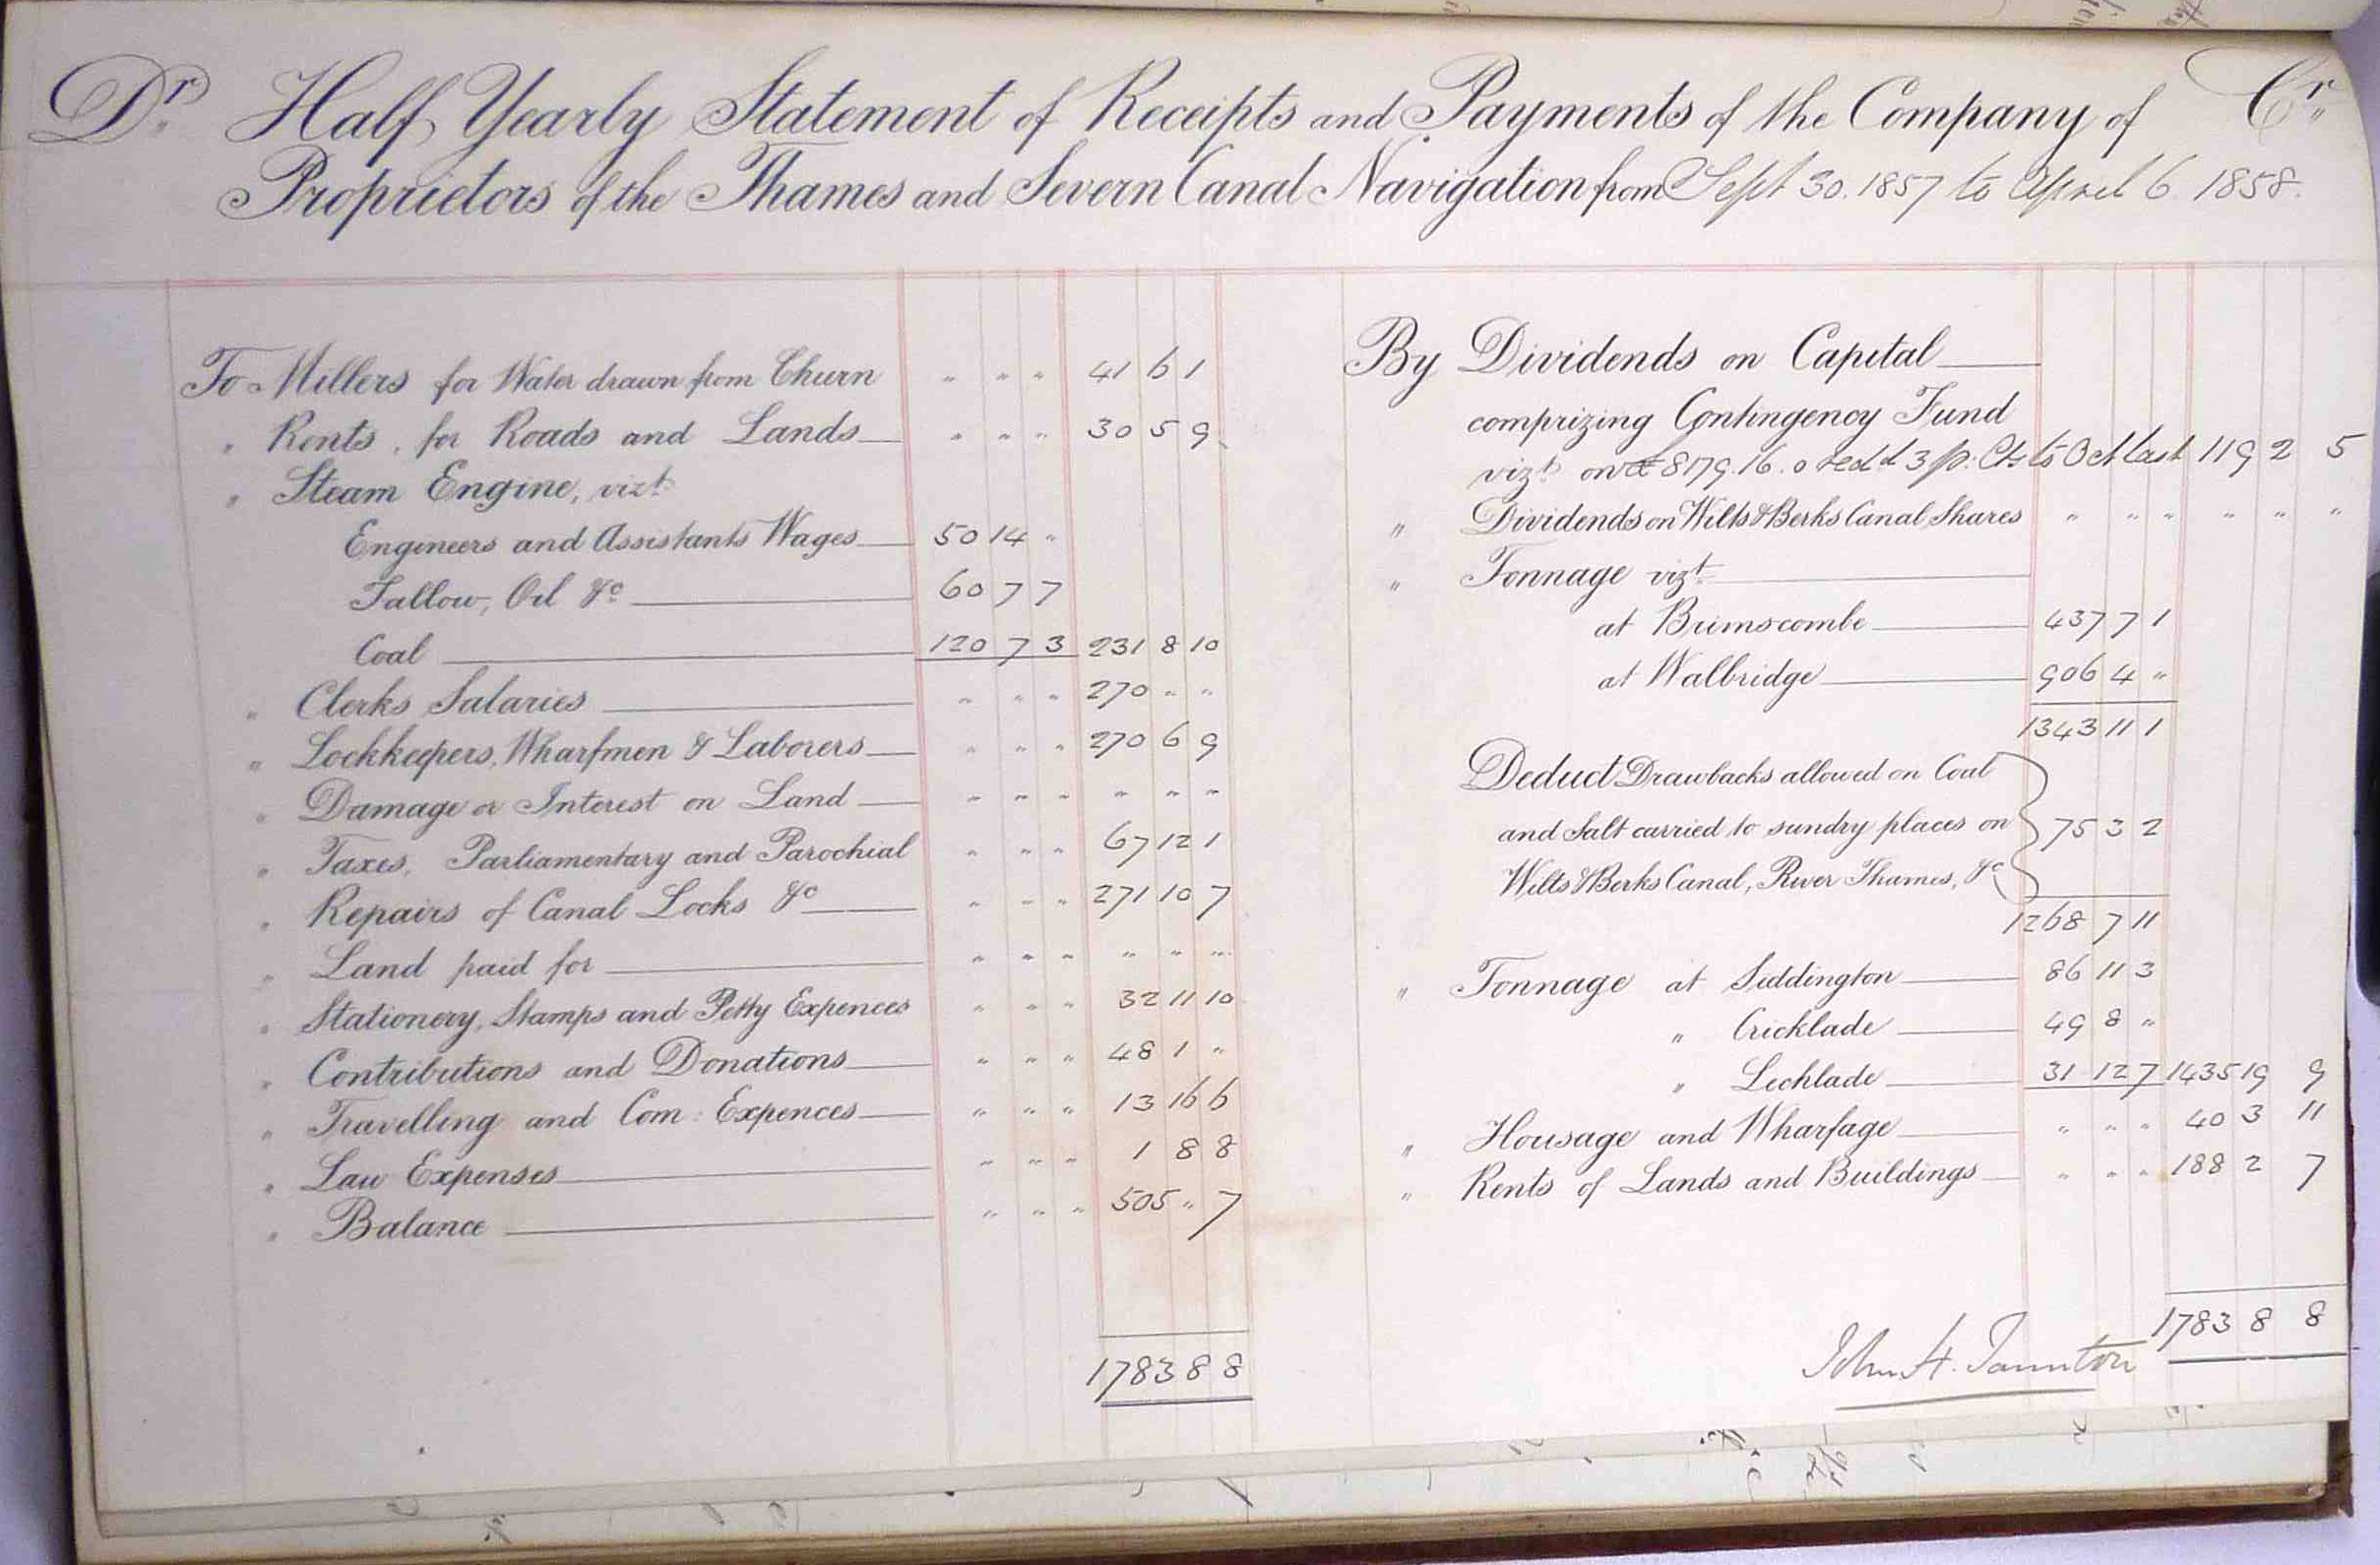 Dr. Half Yearly Statement of Receipts and Payments of the Company of Cr.
Proprietors of the Thames and Severn Canal Navigation from Sept 30. 1857 to April 6. 1858.
To Millers for Water drawn from Churn " " " 41 6 1
" Rents, for Roads and Lands " " " 30 5 9
" Steam Engine, vizt.
Engineers and Assistants Wages 50 14 "
Tallow, Oil &c 60 7 7
Coal 120 7 3 231 8 10
" Clerks Salaries " " " 270 " "
" Lockkeepers, Wharfmen & Laborers " " " 270 6 9
" Damage or Interest on Land " " " " " "
" Taxes, Parliamentary and Parochial " " " 67 12 1
" Repairs of Canal Locks &c " " " 271 10 7
" Land paid for " " " " " "
" Stationery, Stamps and Petty Expences " " " 32 11 10
" Contributions and Donations " " " 48 1 "
" Travelling and Com: Expences " " " 13 16 6
" Law Expenses " " " 1 8 8
" Balance " " " 505 " 7
1783 8 8
By Dividends on Capital
comprizing Contingency Fund
vizt. on £8179.16.0 redd 3 p: Cts to Oct last 119 2 5
" Dividends on Wilts & Berks Canal Shares " " " " " "
" Tonnage vizt.
at Brimscombe 437 7 1
at Walbridge 906 4 "
1343 11 1
Deduct Drawbacks allowed on Coal
and Salt carried to sundry places on 75 3 2
Wilts & Berks Canal, River Thames, &c
1268 7 11
" Tonnage at Siddington 86 11 3
" Cricklade 49 8 "
" Lechlade 31 12 7 1435 19 9
" Housage and Wharfage " " " 40 3 11
" Rents of Lands and Buildings " " " 188 2 7
1783 8 8
John H. Taunton